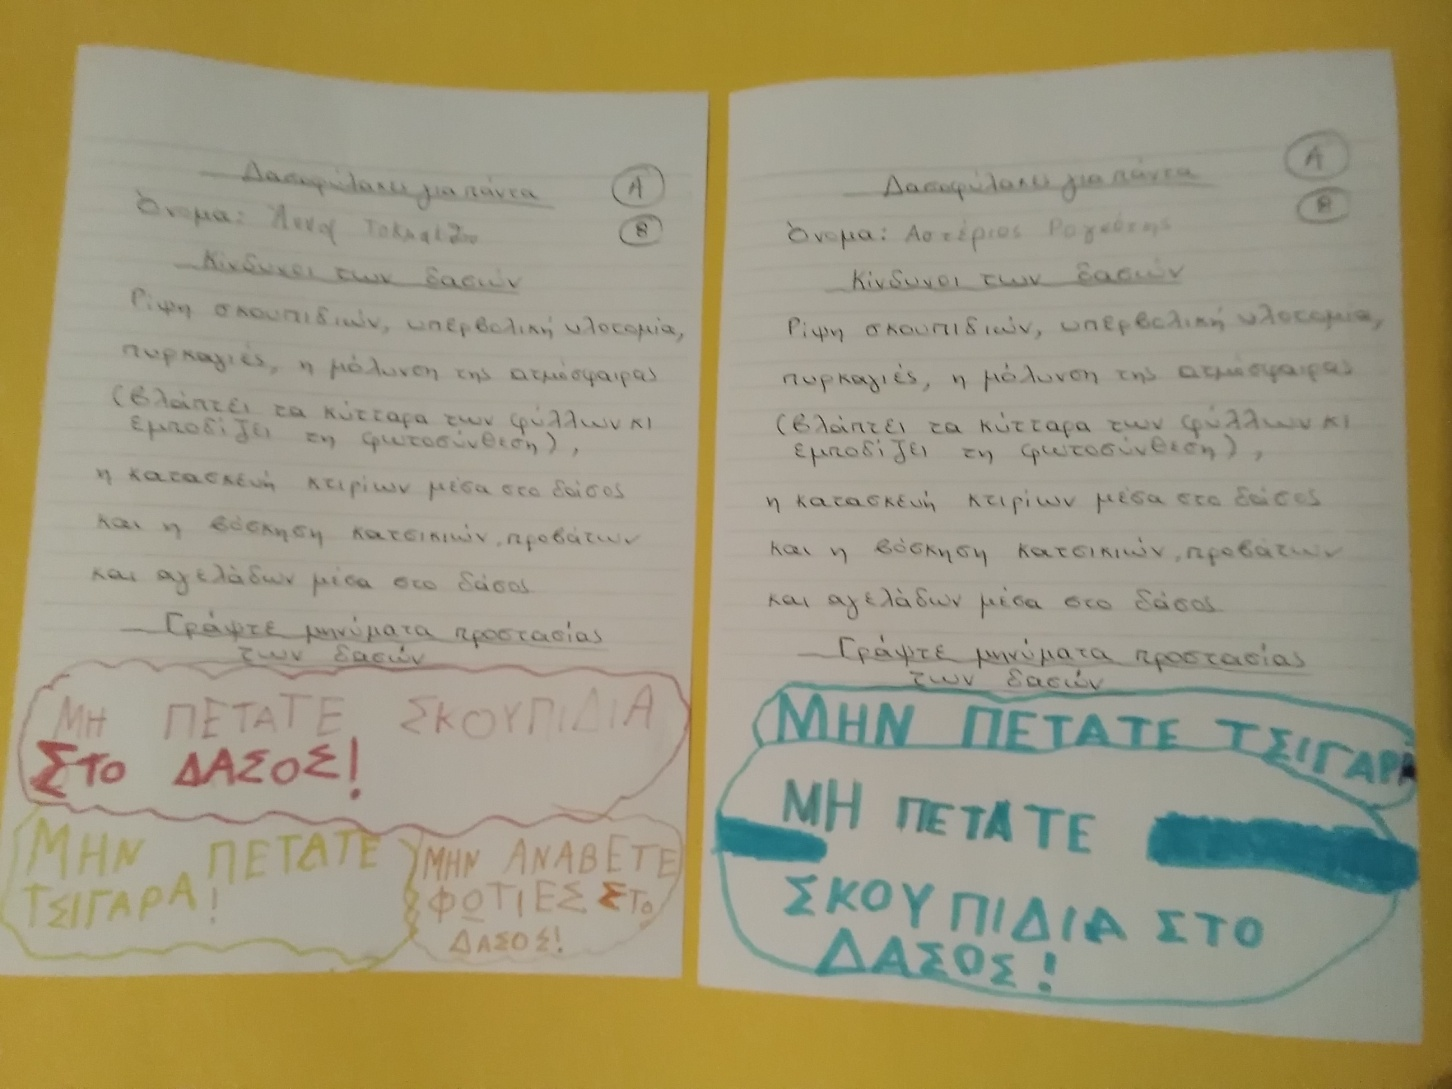 Δασοφύλακες για πάντα
Α
Β
Όνομα: Άννα
Κίνδυνοι των δασών
Ρίψη σκουπιδιών, υπερβολική υλοτομία,
πυρκαγιές, η μόλυνση της ατμόσφαιρας
(βλάπτει τα κύτταρα των φύλλων κι
εμποδίζει τη φωτοσύνθεση),
η κατασκευή κτιρίων μέσα στο δάσος
και η βόσκηση κατσικιών, προβάτων
και αγελάδων μέσα στο δάσος
Γράψτε μηνύματα προστασίας
των δασών
ΜΗ ΠΕΤΑΤΕ ΣΚΟΥΠΙΔΙΑ
ΣΤΟ ΔΑΣΟΣ!
ΜΗΝ ΠΕΤΑΤΕ
ΤΣΙΓΑΡΑ!
ΜΗΝ ΑΝΑΒΕΤΕ
ΦΩΤΙΕΣ ΣΤΟ
ΔΑΣΟΣ!
Δασοφύλακες για πάντα
Α
Β
Όνομα: Αστέριος
Κίνδυνοι των δασών
Ρίψη σκουπιδιών, υπερβολική υλοτομία,
πυρκαγιές, η μόλυνση της ατμόσφαιρας
(βλάπτει τα κύτταρα των φύλλων κι
εμποδίζει τη φωτοσύνθεση),
η κατασκευή κτιρίων μέσα στο δάσος
και η βόσκηση κατσικιών, προβάτων
και αγελάδων μέσα στο δάσος
Γράψτε μηνύματα προστασίας
των δασών
ΜΗΝ ΠΕΤΑΤΕ ΤΣΙΓΑΡΑ
ΜΗ ΠΕΤΑΤΕ
ΣΚΟΥΠΙΔΙΑ ΣΤΟ
ΔΑΣΟΣ!